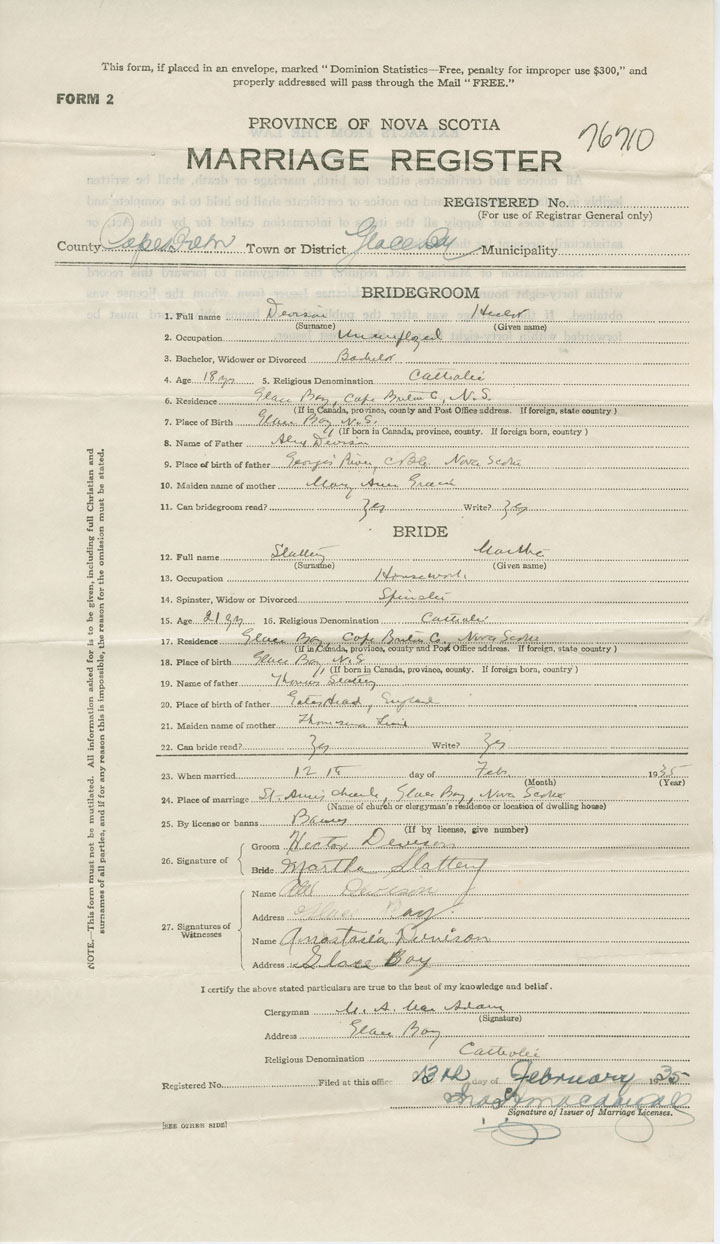 This form, if placed in an envelope, marked "Dominion Statistics—Free, penalty for improper use $300," and
properly addressed will pass through the Mail "FREE."
FORM 2
PROVINCE OF NOVA SCOTIA
76710
MARRIAGE REGISTER
REGISTERED No.
(For use of Registrar General only)
County Cape Breton Town or District Glace Bay Municipality
BRIDEGROOM
1. Full name Devison Hector
(Surname) (Given name)
2. Occupation Unemployed
3. Bachelor, Widower or Divorced Bachelor
4. Age 18 yrs 5. Religious Denomination Catholic
6. Residence Glace Bay, Cape Breton C., N.S.
(If in Canada, province, county and Post Office address. If foreign, state country)
7. Place of Birth Glace Bay N.S.
(If born in Canada, province, county. If foreign born, country)
8. Name of Father Alex Devison
9. Place of birth of father Georges River, Nova Scotia
10. Maiden name of mother Mary Ann
11. Can bridegroom read? Yes Write? Yes
BRIDE
12. Full name Slattery Martha
(Surname) (Given name)
13. Occupation Housework
14. Spinster, Widow or Divorced Spinster
15. Age 21 yrs 16. Religious Denomination Catholic
17. Residence Glace Bay, Cape Breton C., Nova Scotia
(If in Canada, province, county and Post Office address. If foreign, state country)
18. Place of birth Glace Bay N.S.
(If born in Canada, province, county. If foreign born, country)
19. Name of father Thomas Slattery
20. Place of birth of father Gateshead, England
21. Maiden name of mother Thomasina
22. Can bride read? Yes Write? Yes
23. When married 12 th day of Feb. 1935
(Month) (Year)
24. Place of marriage St. Anns Church, Glace Bay, Nova Scotia
(Name of church or clergyman's residence or location of dwelling house)
25. By license or banns Banns
(If by license, give number)
26. Signature of
Groom Hector Devison
Bride Martha Slattery
27. Signatures of
Witnesses
Name Devison
Address Glace Bay.
Name Anastasia Devison
Address Glace Bay
I certify the above stated particulars are true to the best of my knowledge and belief.
Clergyman M. A. MacAdam
(Signature)
Address Glace Bay
Religious Denomination Catholic
Registered No. Filed at this office 13th day of February 1935
Signature of Issuer of Marriage Licenses.
[SEE OTHER SIDE]
NOTE.—This form must not be mutilated. All information asked for is to be given, including full Christian and
surnames of all parties, and if for any reason this is impossible, the reason for the omission must be stated.